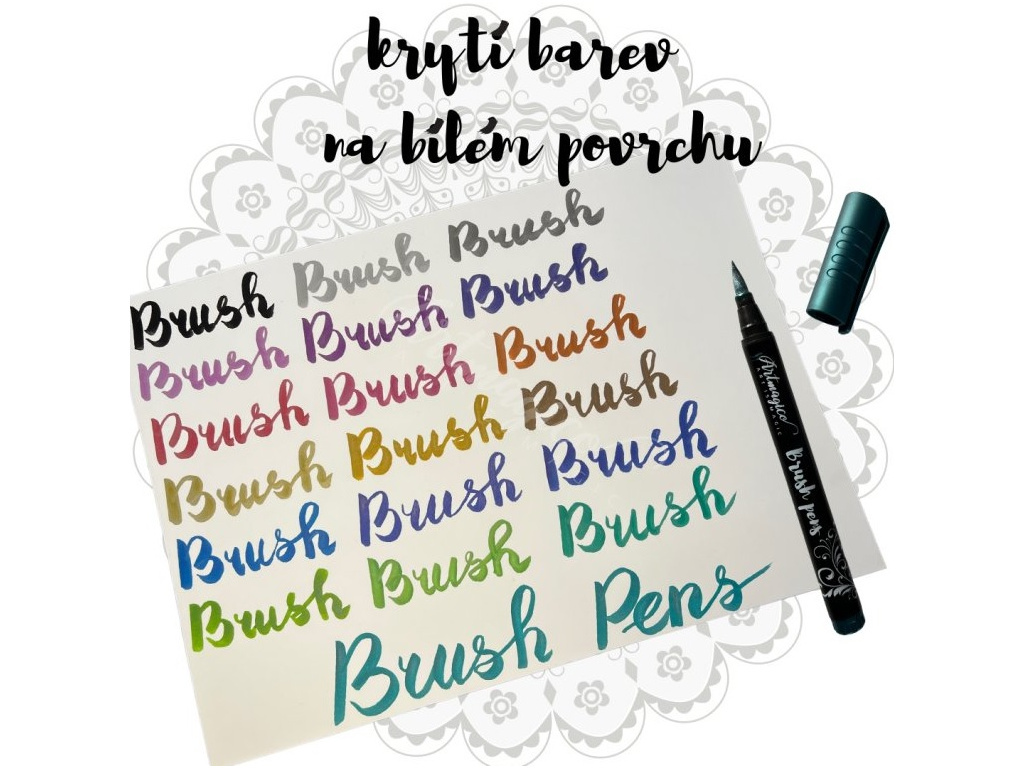 krytí barev
na bílém povrchu
Brush Brush Brush
Brush Brush Brush
Brush Brush Brush
Brush Brush Brush
Brush Brush Brush
Brush Brush Brush
Brush Pens
Artmagico
Brush pens